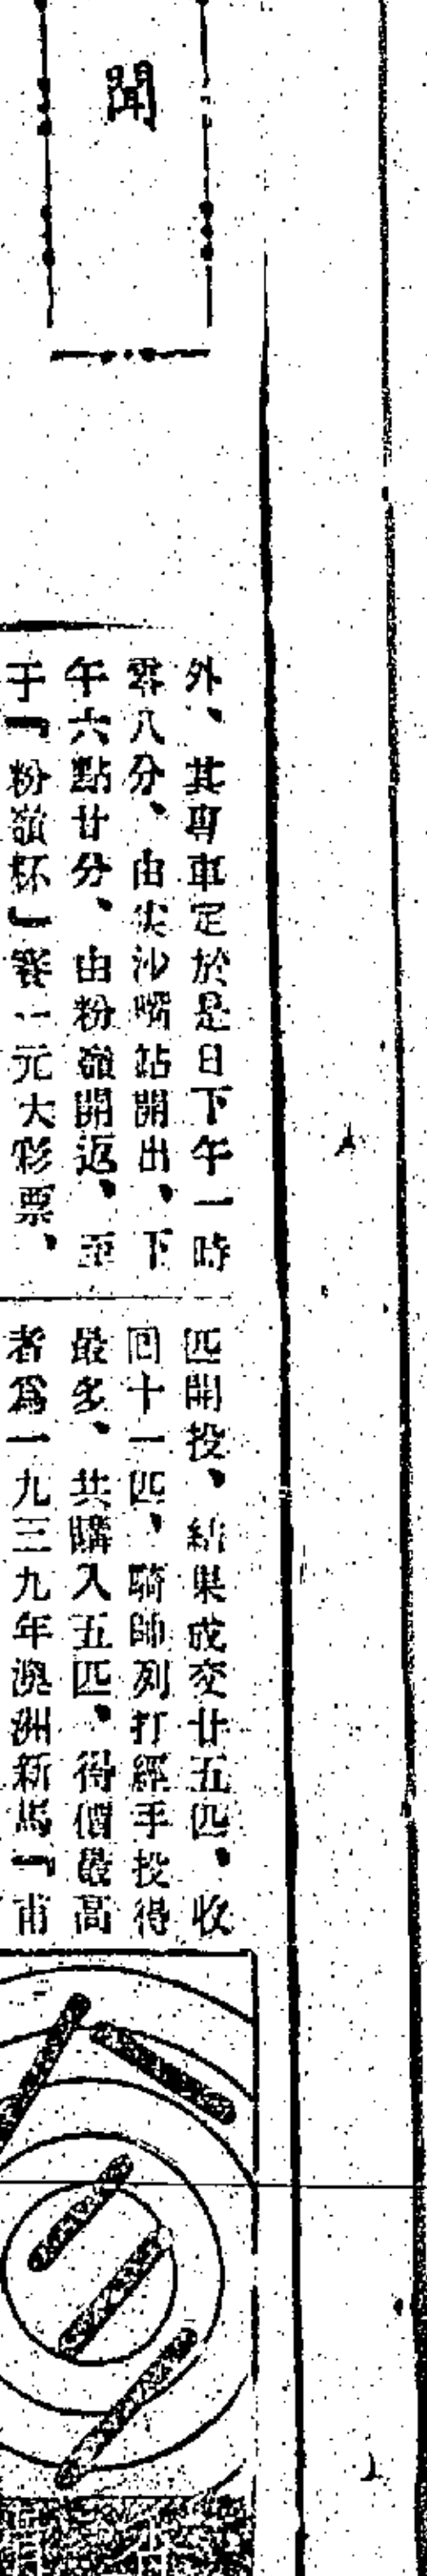 聞
外、其專車定於是日下午一時
零八分、由尖沙嘴站開出、下
午六點廿分、由粉嶺開返、至
于「粉嶺杯」賽一元大彩票、
匹開投、結果成交廿五匹、收
回十一匹、騎師列打經手投得
最多、共購入五匹、得價最高
者爲一九三九年澳洲新馬「甫